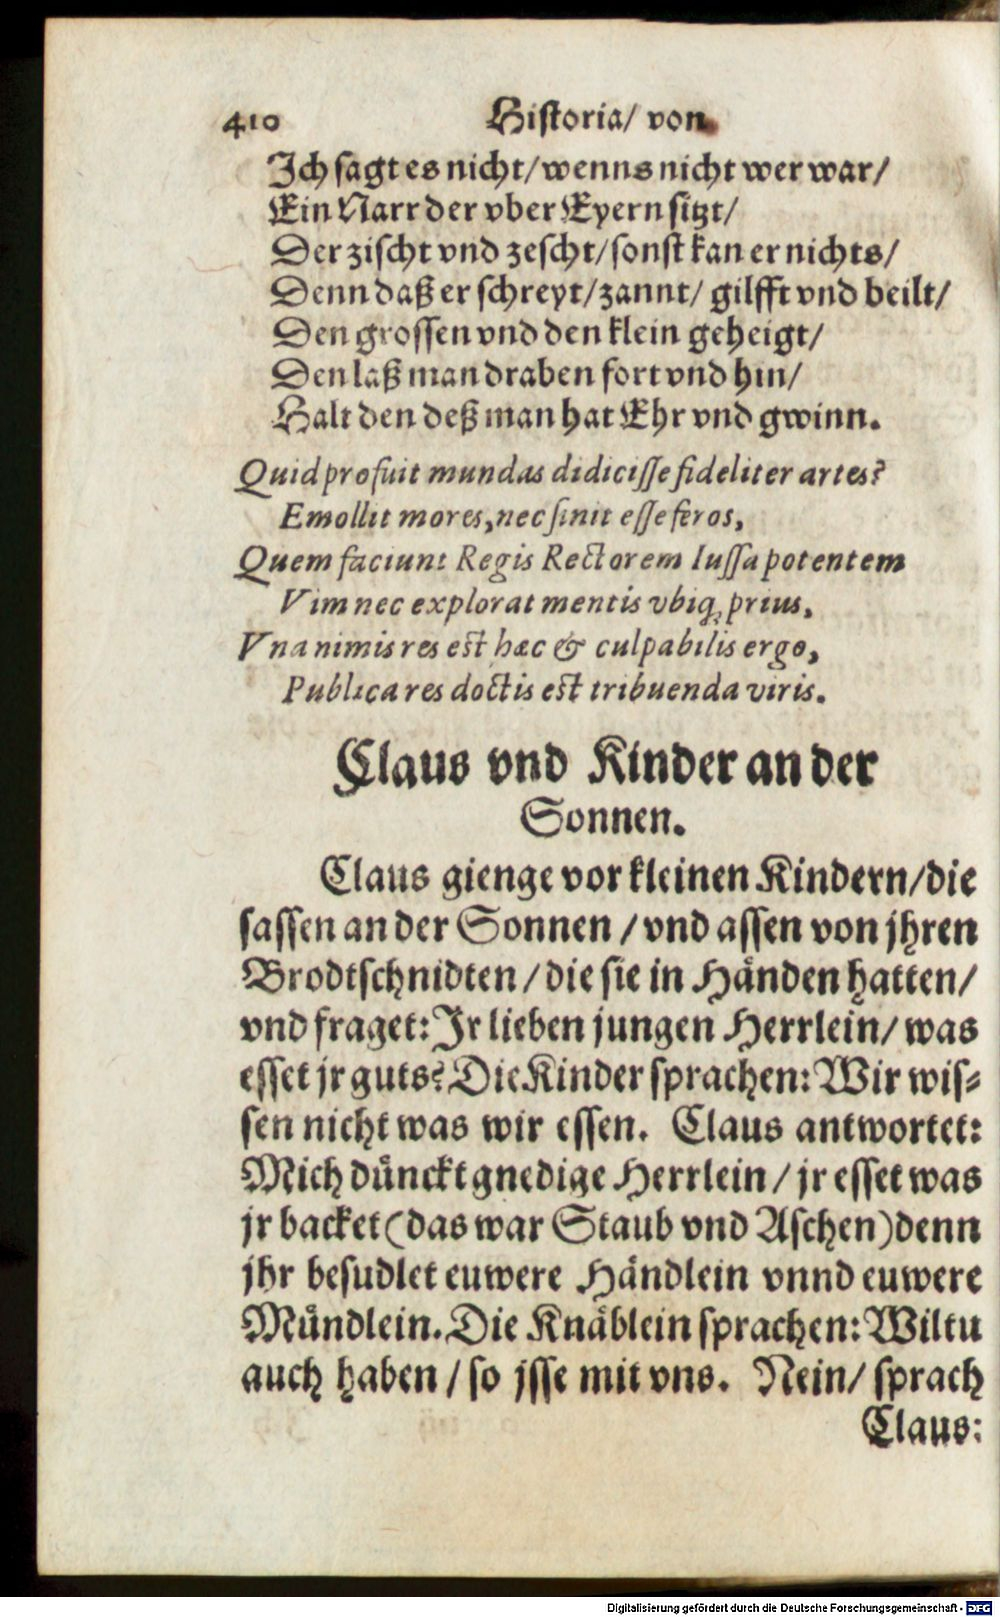 410 Historia/ von
Ich sagt es nicht/ wenns nicht wer war/
Ein Narr der vber Eyern sitzt/
Der zischt vnd zescht/ sonst kan er nichts/
Denn daß er schreyt/ zannt/ gilfft vnd beilt/
Den grossen vnd den klein geheigt/
Den laß man draben fort vnd hin/
Halt den deß man hat Ehr vnd gwinn.
Quid profuit mundas didicisse fideliter artes?
Emollit mores, nec sinit esse feros,
Quem faciunt Regis Rectorem Iussa potentem
Vim nec explorat mentis vbiq; prius,
Vna nimis res est hæc & culpabilis ergo,
Publica res doctis est tribuenda viris.
Claus vnd Kinder an der
Sonnen.
Claus gienge vor kleinen Kindern/ die
sassen an der Sonnen / vnd assen von jhren
Brodtschnidten / die sie in Händen hatten/
vnd fraget: Ir lieben jungen Herrlein/ was
esset jr guts? Die Kinder sprachen: Wir wis-
sen nicht was wir essen. Claus antwortet:
Mich dünckt gnedige Herrlein / jr esset was
jr backet (das war Staub vnd Aschen) denn
jhr besudlet euwere Händlein vnnd euwere
Mündlein. Die Knäblein sprachen: Wiltu
auch haben / so jsse mit vns. Nein/ sprach
Claus:
Digitalisierung gefördert durch die Deutsche Forschungsgemeinschaft - DFG